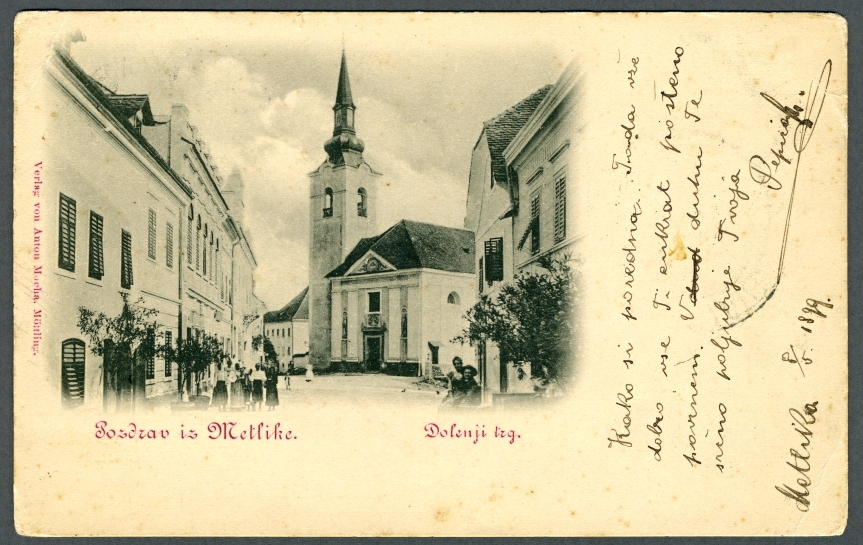 Verlag von Anton Macha, Möttling.
Pozdrav iz Metlike.
Dolenji trg.
Kako si poredna. Toda vse
dobro vse Ti enkrat pošteno
povrnem. V duhu Te
srčno poljubuje Tvoja
Pepica.
Metlika 8/5. 1899.